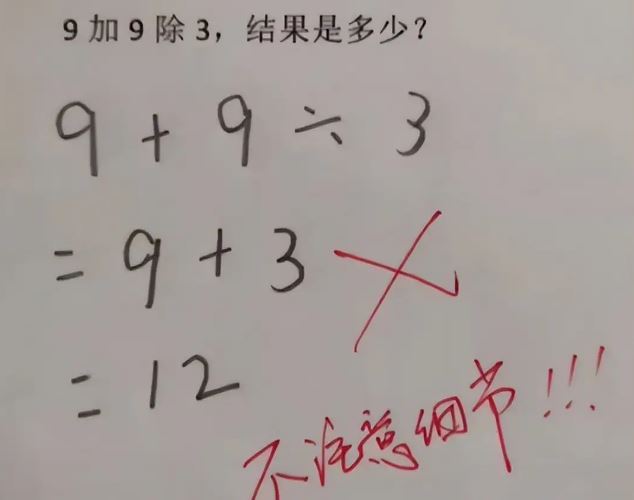 9 加 9 除 3，结果是多少？
9 + 9 ÷ 3
= 9 + 3
= 12
不注意细节!!!